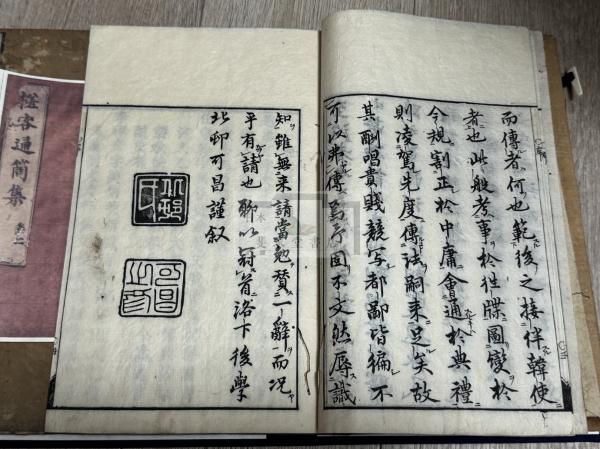 而傳者何也範後之接伴韓使
者也此般考事於往牒圖變於
今規割正於中庸會通於典禮
則凌駕先度傳法嗣来足矣故
其酬唱貴賤競写都鄙皆徧不
可以弗傳焉予固不文然辱識
知雖無来請當勉賛一辭而况
乎有請也聊以冠首洛下後學
北邨可昌謹叙
北邨
可昌之印
槎客通筒集
卷二